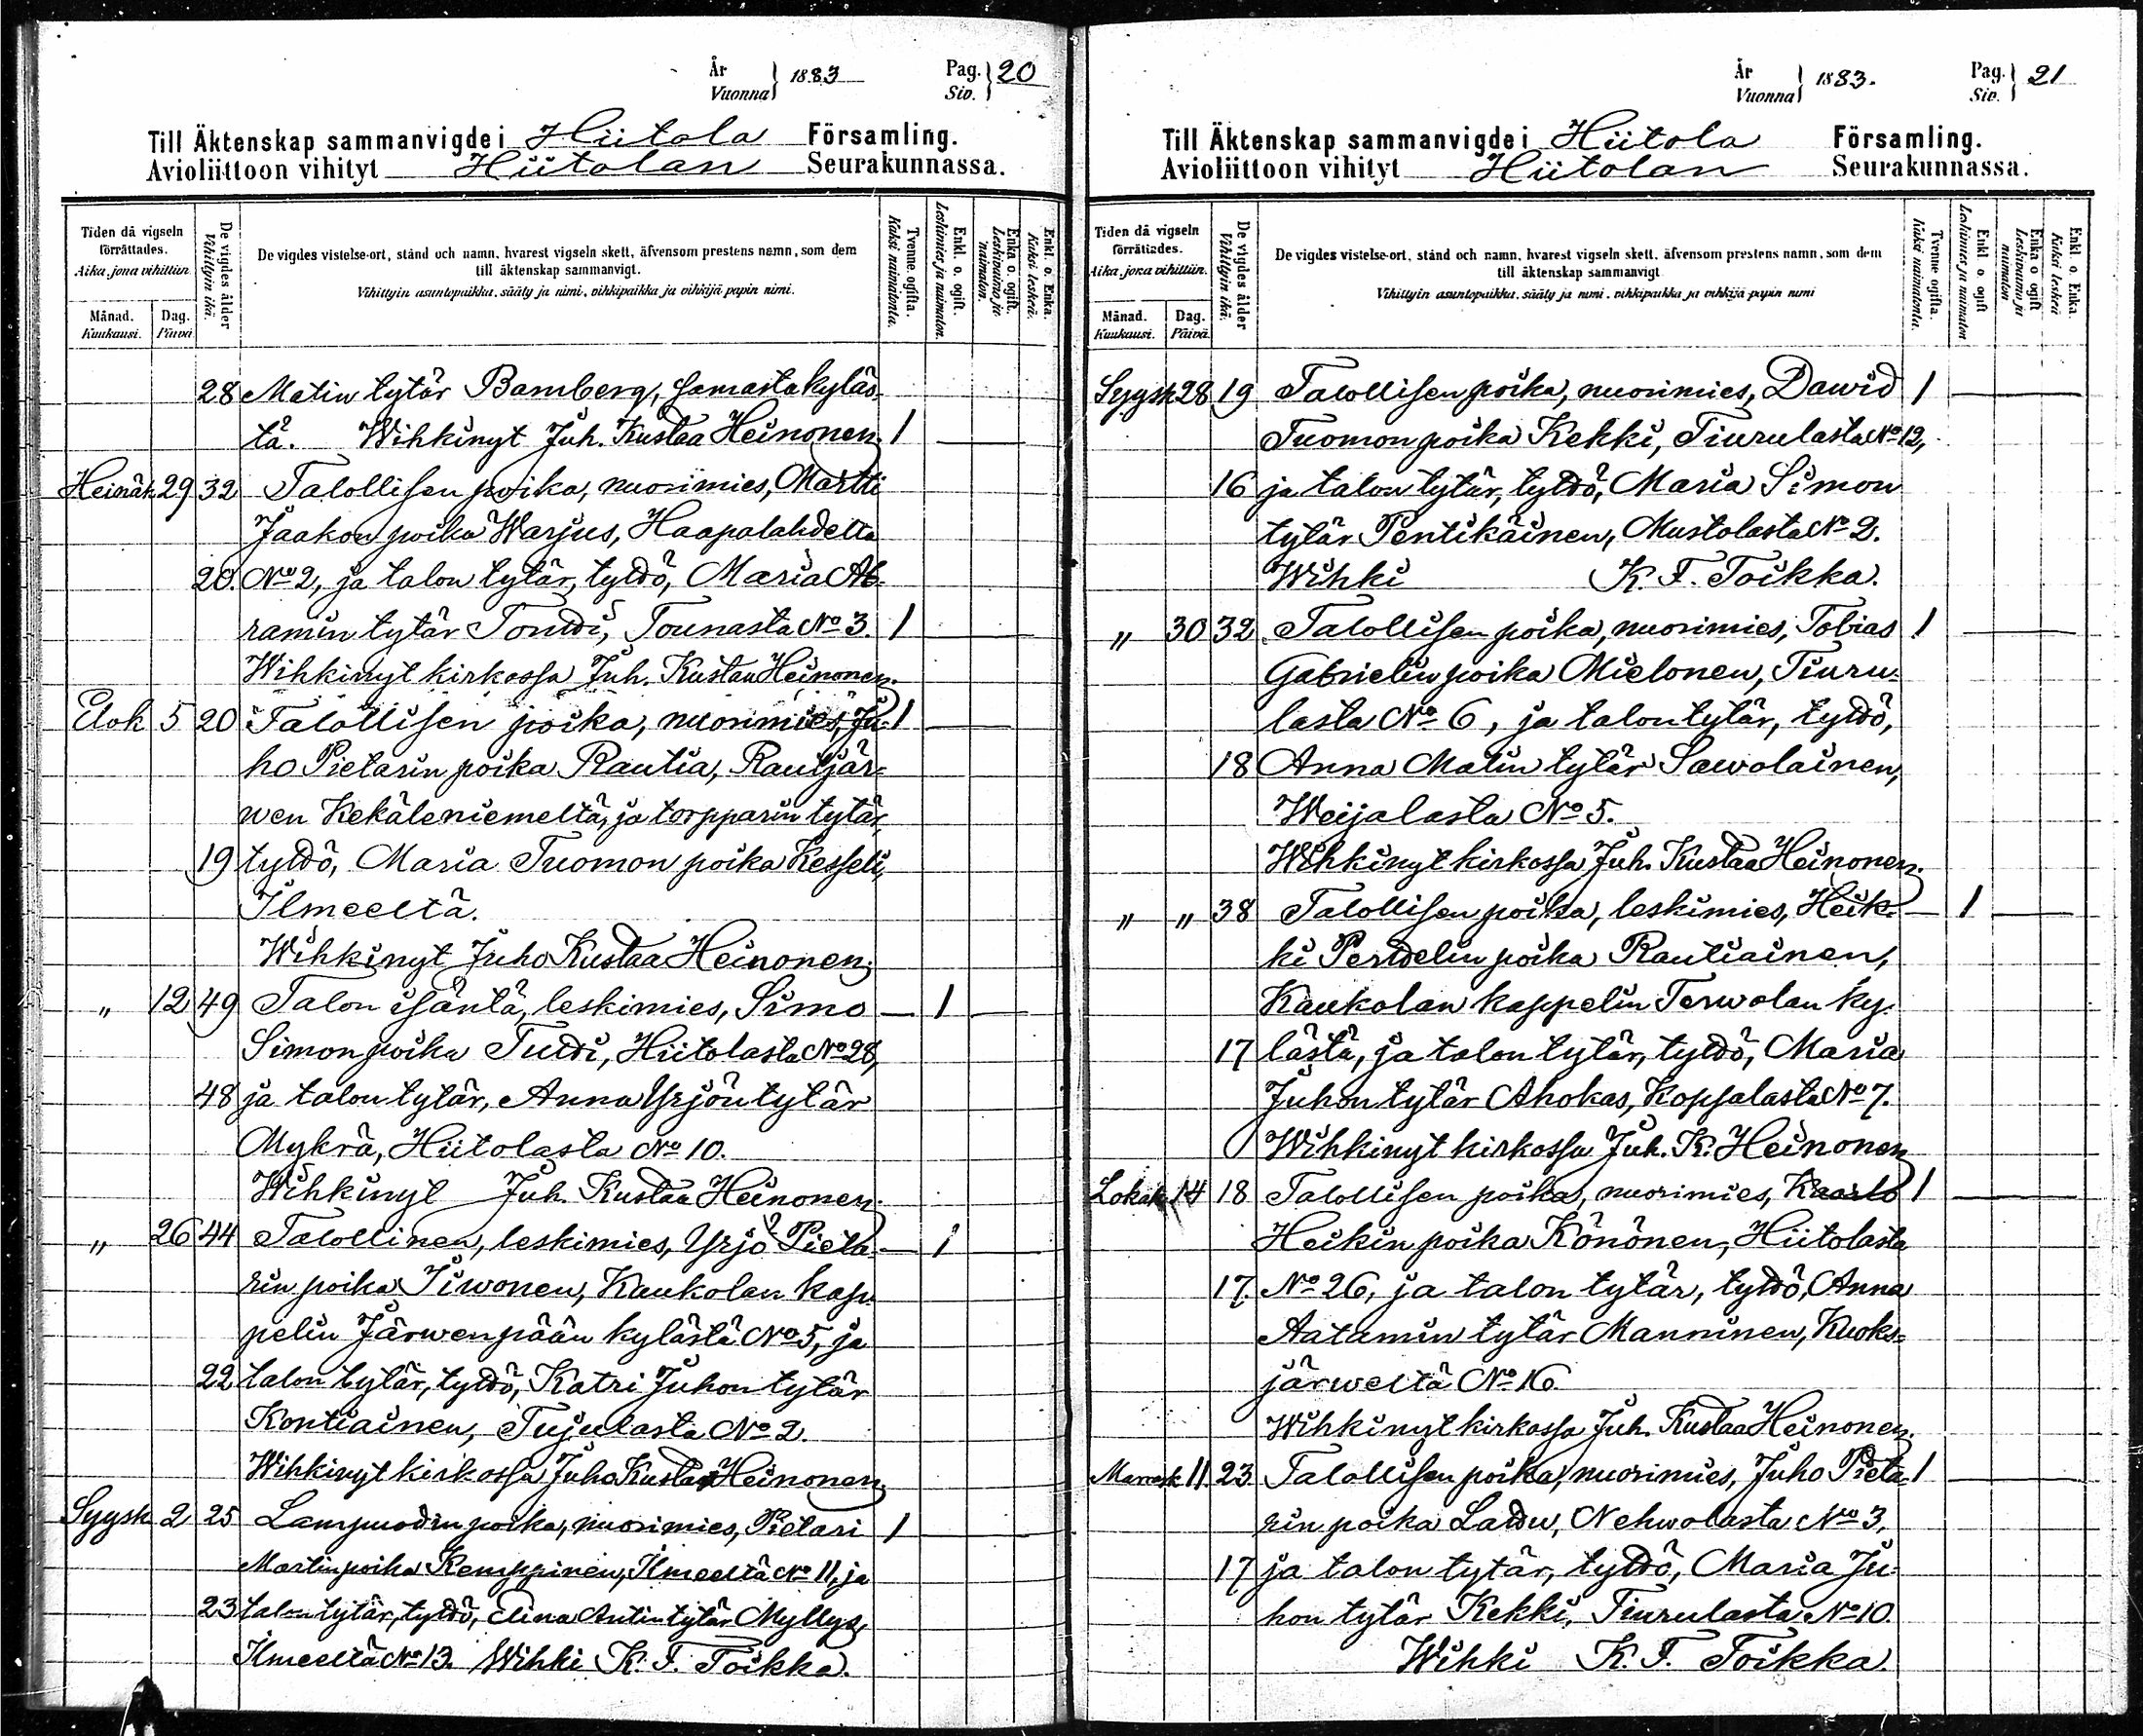 År Vuonna } 1883 Pag. Siv. } 20
Till Äktenskap sammanvigde i Hiitola Församling.
Avioliittoon vihityt Hiitolan Seurakunnassa.
Tiden då vigseln förrättades. Aika, jona vihittiin.
Månad. Kuukausi. Dag. Päivä.
De vigdes ålder Vihittyin ikä.
De vigdes vistelse-ort, stånd och namn, hvarest vigseln skett, äfvensom prestens namn, som dem
till äktenskap sammanvigt.
Vihittyin asuntopaikka, sääty ja nimi, vihkipaikka ja vihkijä papin nimi.
Tvenne ogifta. Kaksi naimatonta.
Enkl. o. ogift. Leskimies ja naimaton.
Enka o. ogift. Leskivaimo ja naimaton.
Enkl. o. Enka. Kaksi leskeä.
28 Matin tytär Bamberg, samasta kyläs-
tä. Wihkinyt Juh. Kustaa Heinonen. 1
Heinäk 29 32 Talollisen poika, nuorimies, Martti
Jaakon poika Warjus, Haapalahdelta
20. No 2, ja talon tytär, tyttö, Maria Ab-
ramin tytär Tontti, Tounasta No 3. 1
Wihkinyt kirkossa Juh. Kustaa Heinonen.
Elok 5 20 Talollisen poika, nuorimies, Ju- 1
ho Pietarin poika Rautia, Rautjär-
wen Kekäleniemeltä, ja torpparin tytär,
19 tyttö, Maria Tuomon poika Kesseli,
Ilmeeltä.
Wihkinyt Juho Kustaa Heinonen.
" 12 49 Talon isäntä, leskimies, Simo — 1
Simon poika Tutti, Hiitolasta No 28,
48 ja talon tytär, Anna Yrjön tytär
Mykrä, Hiitolasta No 10.
Wihkinyt Juh. Kustaa Heinonen.
" 26 44 Talollinen, leskimies, Yrjö Pieta- — 1
rin poika Tiwonen, Kaukolan kap-
pelin Järwenpään kylästä No 5, ja
22 talon tytär, tyttö, Katri Juhon tytär
Kontiainen, Tujulasta No 2.
Wihkinyt kirkossa Juho Kustaa Heinonen.
Syysk 2 25 Lampuodin poika, nuorimies, Pietari 1
Martin poika Kemppinen, Ilmeeltä No 11, ja
23 talon tytär, tyttö, Elina Antin tytär Myllys,
Ilmeeltä No 13. Wihki K. F. Toikka.
År Vuonna } 1883. Pag. Siv. } 21
Till Äktenskap sammanvigde i Hiitola Församling.
Avioliittoon vihityt Hiitolan Seurakunnassa.
Tiden då vigseln förrättades. Aika, jona vihittiin.
Månad. Kuukausi. Dag. Päivä.
De vigdes ålder Vihittyin ikä.
De vigdes vistelse-ort, stånd och namn, hvarest vigseln skett, äfvensom prestens namn, som dem
till äktenskap sammanvigt
Vihittyin asuntopaikka, sääty ja nimi, vihkipaikka ja vihkijä papin nimi
Tvenne ogifta. Kaksi naimatonta.
Enkl. o. ogift Leskimies ja naimaton
Enka o ogift Leskivaimo ja naimaton
Enkl. o. Enka. Kaksi leskeä
Syysk 28 19 Talollisen poika, nuorimies, Dawid 1
Tuomon poika Kekki, Tiurulasta No 12,
16 ja talon tytär, tyttö, Maria Simon
tytär Pentikäinen, Mustolasta No 2.
Wihki K. F. Toikka.
" 30 32 Talollisen poika, nuorimies, Tobias 1
Gabrielin poika Mielonen, Tiuru-
lasta No 6, ja talon tytär, tyttö,
18 Anna Matin tytär Sawolainen,
Weijalasta No 5.
Wihkinyt kirkossa Juh. Kustaa Heinonen.
" " 38 Talollisen poika, leskimies, Heik- — 1
ki Perttelin poika Rautiainen,
Kaukolan kappelin Terwolan ky-
17 lästä, ja talon tytär, tyttö, Maria
Juhon tytär Ahokas, Kopsalasta No 7.
Wihkinyt kirkossa Juh. K. Heinonen
Lokak 14 18 Talollisen poika, nuorimies, Kaarlo 1
Heikin poika Könönen, Hiitolasta
17. No 26, ja talon tytär, tyttö, Anna
Aatamin tytär Manninen, Kuoks-
järweltä No 16.
Wihkinyt kirkossa Juh. Kustaa Heinonen.
Marrask 11. 23 Talollisen poika, nuorimies, Juho Pieta- 1
rin poika Lattu, Nehwolasta No 3,
17 ja talon tytär, tyttö, Maria Ju-
hon tytär Kekki, Tiurulasta No 10.
Wihki K. F. Toikka.